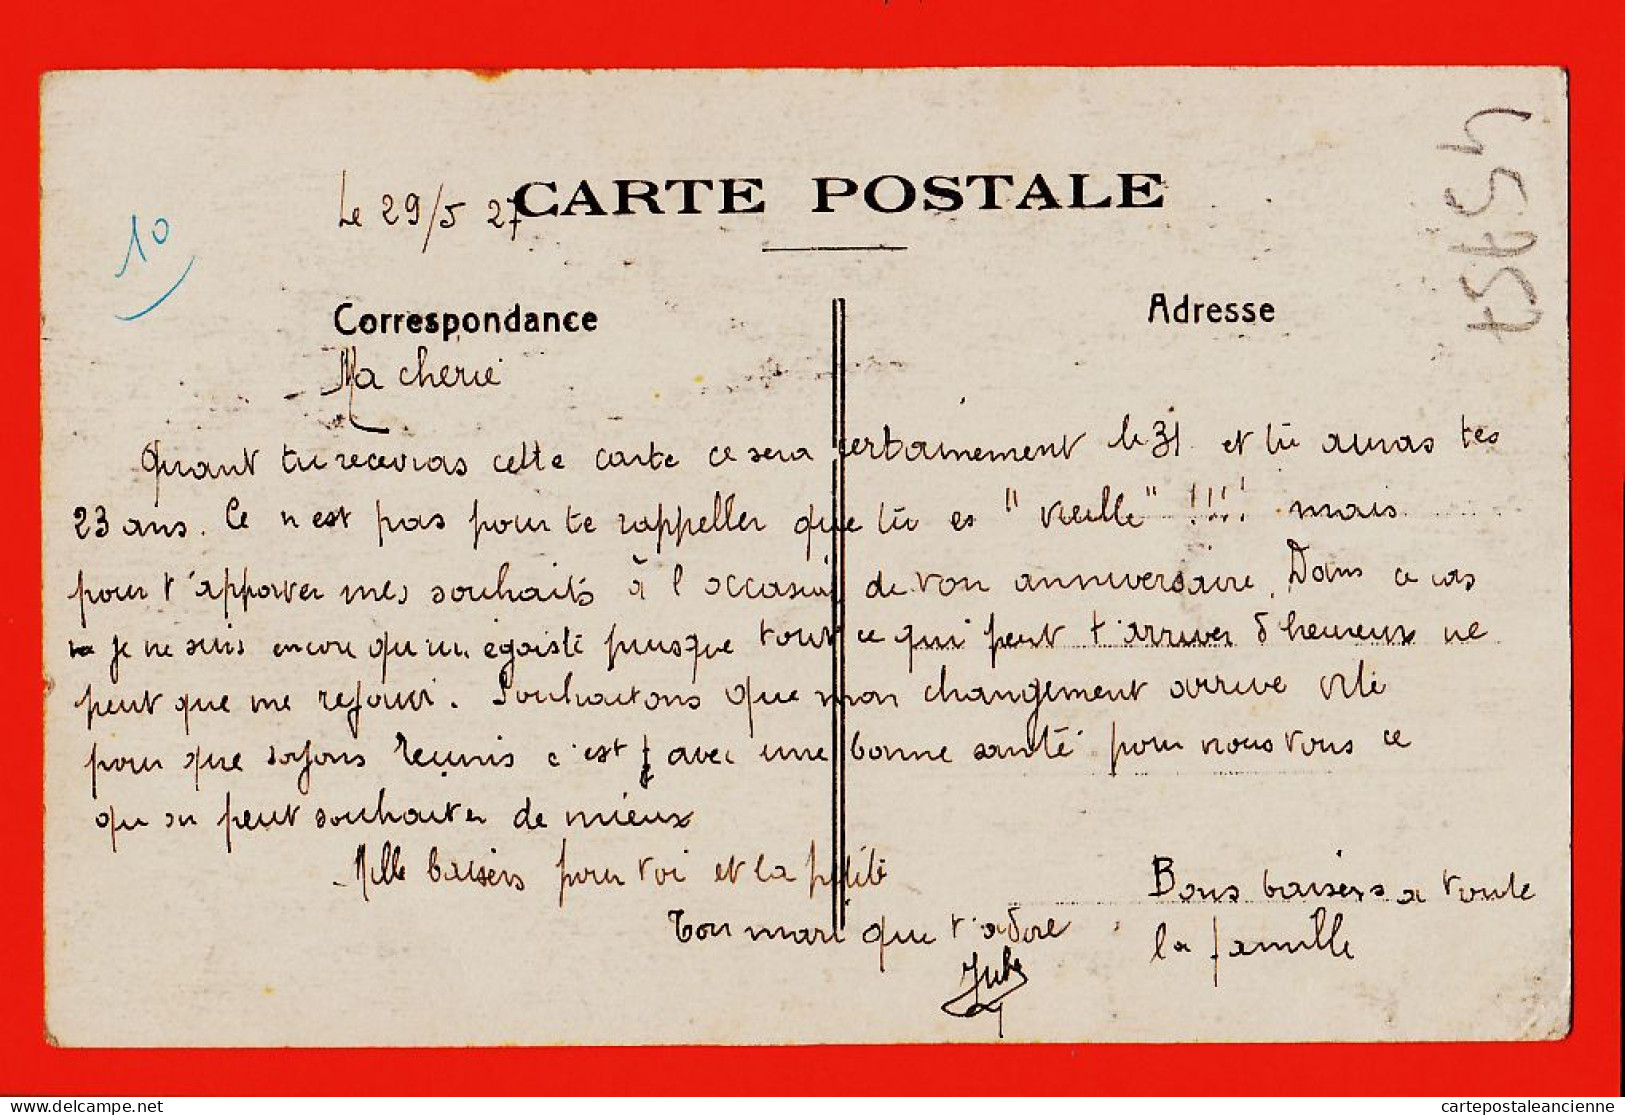 Le 29/5 27
CARTE POSTALE
10
4357
Correspondance
Adresse
Ma cherie
Quant tu recevras cette carte ce sera certainement le 31 et tu auras tes
23 ans. Ce n'est pas pour te rappeller que tu es "vieille" !!!! mais
pour t'apporter mes souhaits à l'occasion de ton anniversaire. Dans ce cas
je ne suis encore qu'un égoiste puisque tout ce qui peut t'arriver d'heureux ne
peut que me rejouir. Souhaitons que mon changement arrive vite
pour que soyons reunis c'est avec une bonne santé pour nous tous ce
qu'on peut souhaiter de mieux
Mille baisers pour toi et la petite
Ton mari que t'adore
Jules
Bons baisers a toute
la famille
delcampe.net
cartepostaleancienne